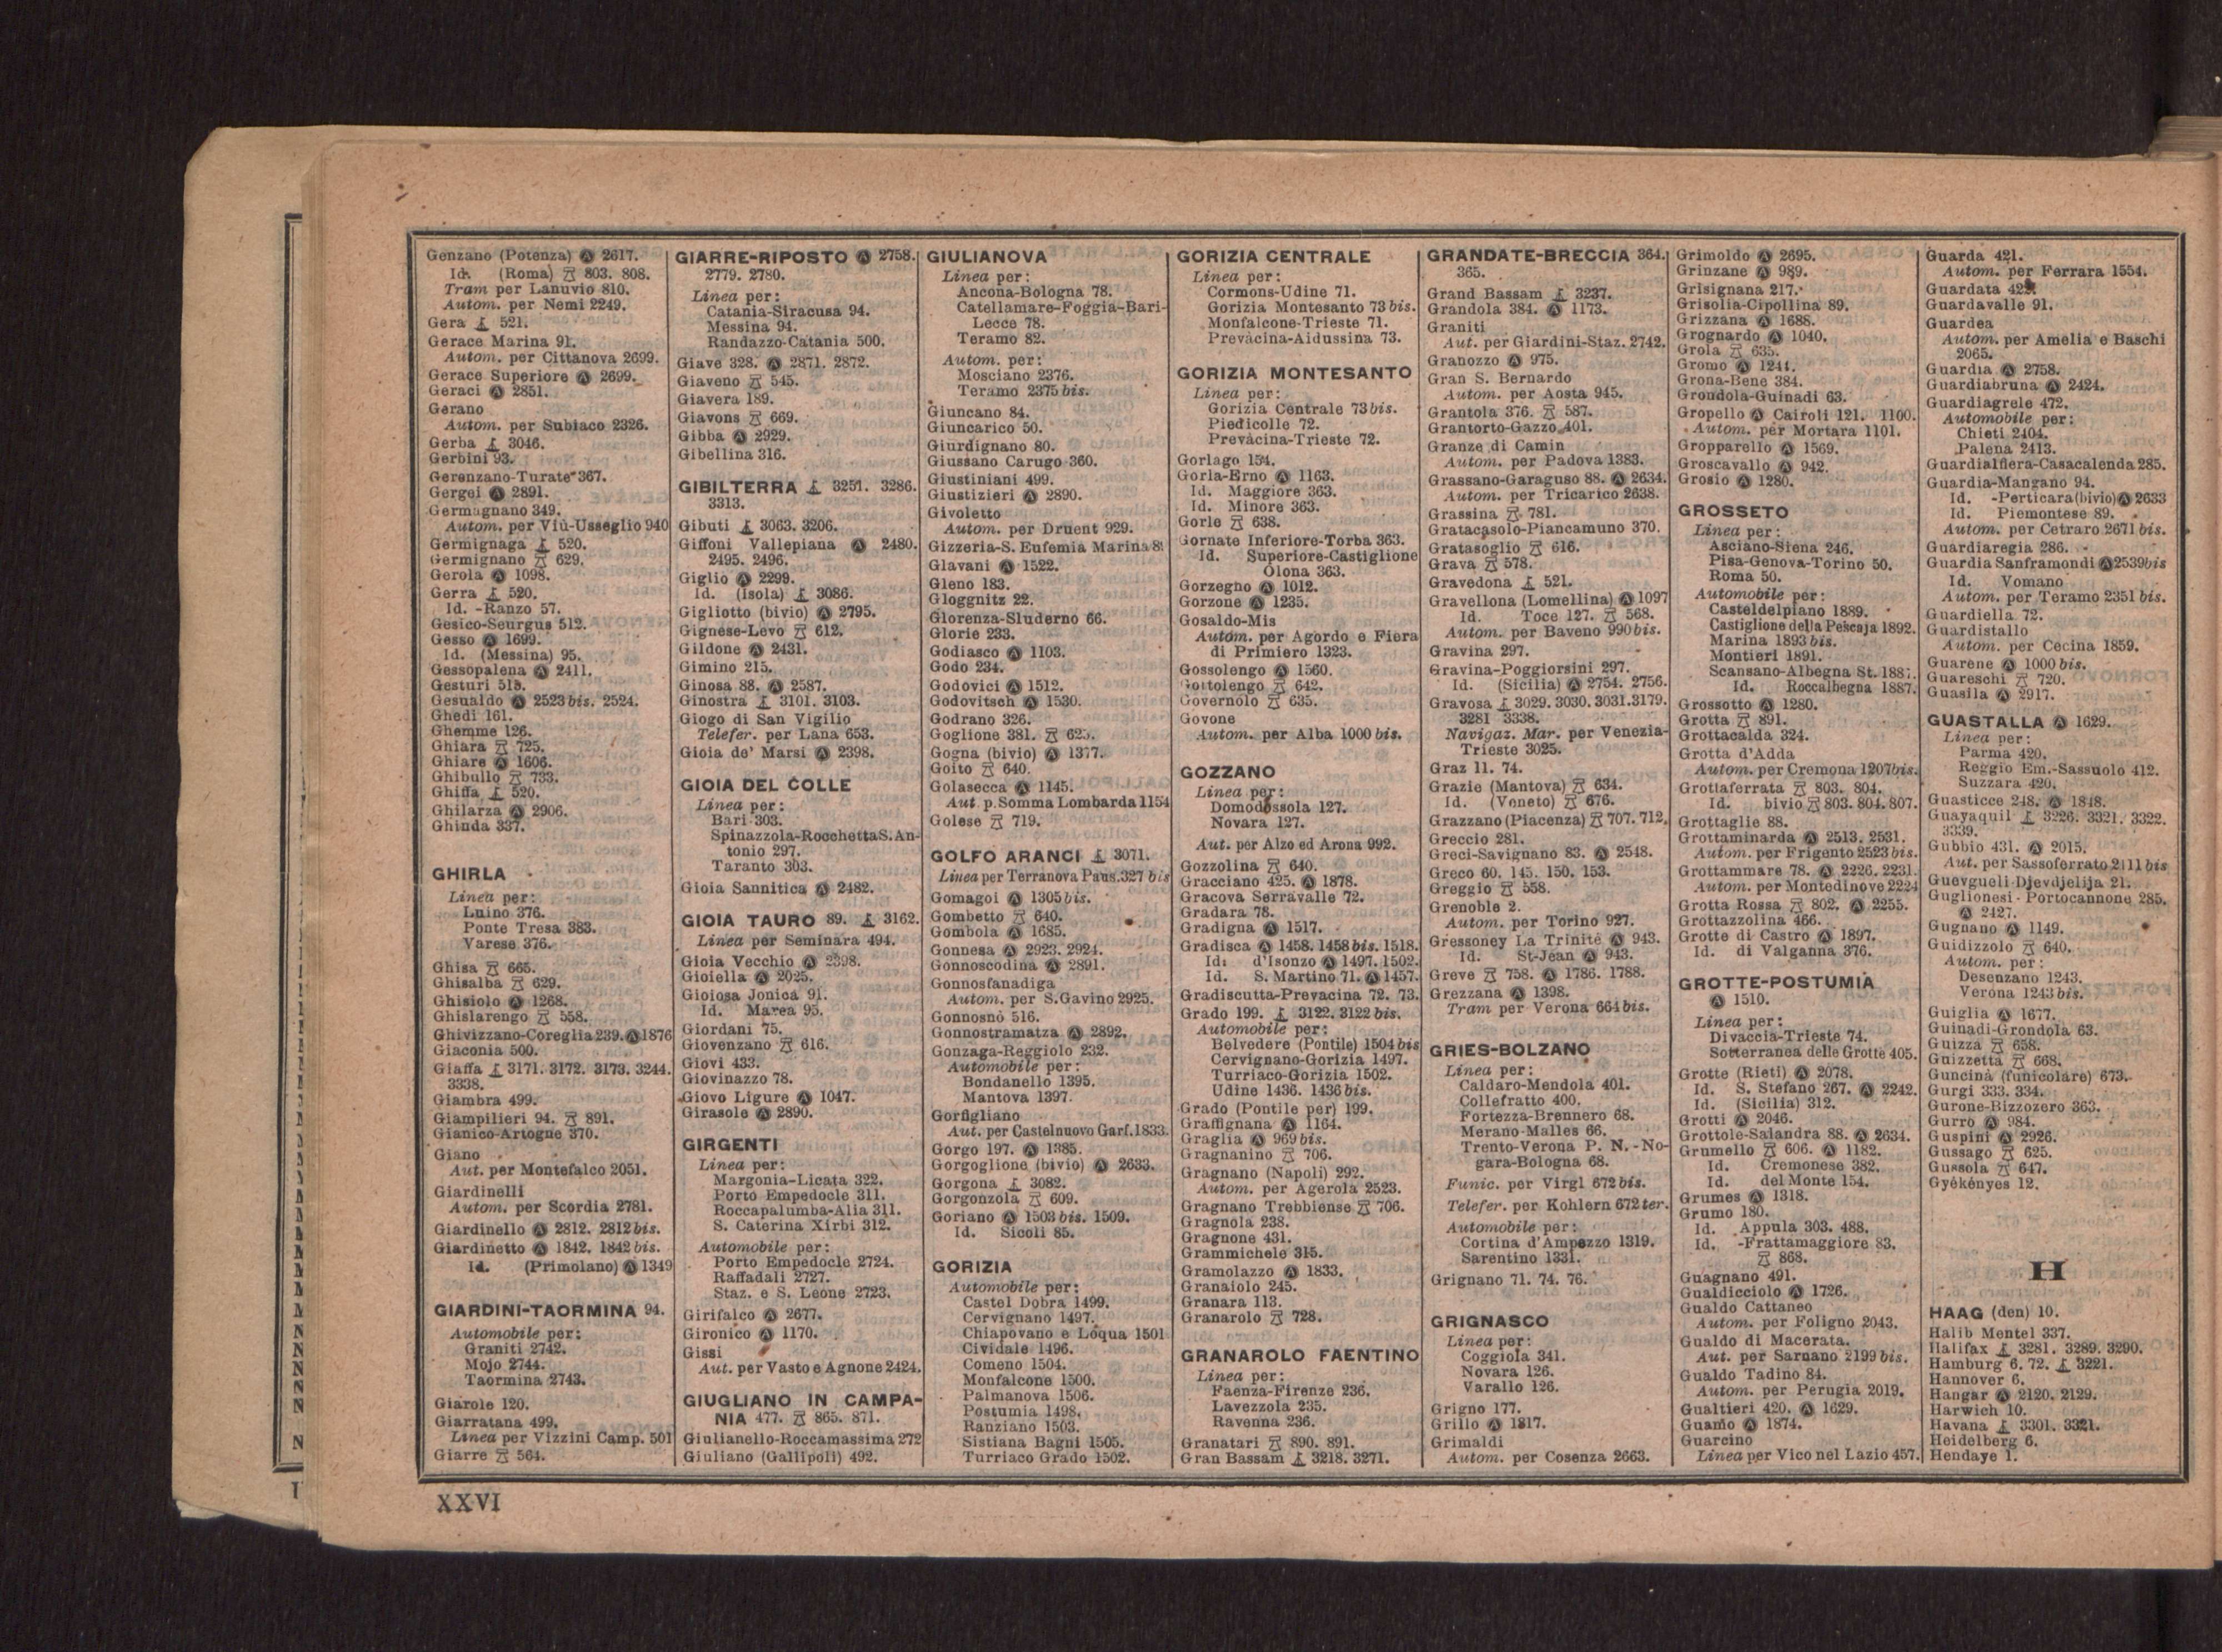 Genzano (Potenza) Ⓐ 2617.
Id. (Roma) 803. 808.
Tram per Lanuvio 810.
Autom. per Nemi 2249.
Gera 521.
Gerace Marina 91.
Autom. per Cittanova 2699.
Gerace Superiore Ⓐ 2699.
Geraci Ⓐ 2851.
Gerano
Autom. per Subiaco 2326.
Gerba 3046.
Gerbini 93.
Gerenzano-Turate 367.
Gergei Ⓐ 2891.
Germagnano 349.
Autom. per Viù-Usseglio 940
Germignaga 520.
Germignano 629.
Gerola Ⓐ 1098.
Gerra 520.
Id. -Ranzo 57.
Gesico-Seurgus 512.
Gesso Ⓐ 1699.
Id. (Messina) 95.
Gessopalena Ⓐ 2411.
Gesturi 513.
Gesualdo Ⓐ 2523 bis. 2524.
Ghedi 161.
Ghemme 126.
Ghiara 725.
Ghiare Ⓐ 1606.
Ghibullo 733.
Ghiffa 520.
Ghilarza Ⓐ 2906.
Ghinda 337.
GHIRLA
Linea per:
Luino 376.
Ponte Tresa 383.
Varese 376.
Ghisa 665.
Ghisalba 629.
Ghisiolo Ⓐ 1268.
Ghislarengo 558.
Ghivizzano-Coreglia 239. Ⓐ 1876
Giaconia 500.
Giaffa 3171. 3172. 3173. 3244.
3338.
Giambra 499.
Giampilieri 94. 891.
Gianico-Artogne 370.
Giano
Aut. per Montefalco 2051.
Giardinelli
Autom. per Scordia 2781.
Giardinello Ⓐ 2812. 2812 bis.
Giardinetto Ⓐ 1842. 1842 bis.
Id. (Primolano) Ⓐ 1349
GIARDINI-TAORMINA 94.
Automobile per:
Graniti 2742.
Mojo 2744.
Taormina 2743.
Giarole 120.
Giarratana 499.
Linea per Vizzini Camp. 501
Giarre 564.
GIARRE-RIPOSTO Ⓐ 2758.
2779. 2780.
Linea per:
Catania-Siracusa 94.
Messina 94.
Randazzo-Catania 500.
Giave 328. Ⓐ 2871. 2872.
Giaveno 545.
Giavera 189.
Giavons 669.
Gibba Ⓐ 2929.
Gibellina 316.
GIBILTERRA 3251. 3286.
3313.
Gibuti 3063. 3206.
Giffoni Vallepiana Ⓐ 2480.
2495. 2496.
Giglio Ⓐ 2299.
Id. (Isola) 3086.
Gigliotto (bivio) Ⓐ 2795.
Gignese-Levo 612.
Gildone Ⓐ 2431.
Gimino 215.
Ginosa 88. Ⓐ 2587.
Ginostra 3101. 3103.
Giogo di San Vigilio
Telefer. per Lana 653.
Gioia de' Marsi Ⓐ 2398.
GIOIA DEL COLLE
Linea per:
Bari 303.
Spinazzola-Rocchetta S. An-
tonio 297.
Taranto 303.
Gioia Sannitica Ⓐ 2482.
GIOIA TAURO 89. 3162.
Linea per Seminara 494.
Gioia Vecchio Ⓐ 2398.
Gioiella Ⓐ 2025.
Gioiosa Jonica 91.
Id. Marea 95.
Giordani 75.
Giovenzano 616.
Giovi 433.
Giovinazzo 78.
Giovo Ligure Ⓐ 1047.
Girasole Ⓐ 2890.
GIRGENTI
Linea per:
Margonia-Licata 322.
Porto Empedocle 311.
Roccapalumba-Alia 311.
S. Caterina Xirbi 312.
Automobile per:
Porto Empedocle 2724.
Raffadali 2727.
Staz. e S. Leone 2723.
Girifalco Ⓐ 2677.
Gironico Ⓐ 1170.
Gissi
Aut. per Vasto e Agnone 2424.
GIUGLIANO IN CAMPA-
NIA 477. 865. 871.
Giulianello-Roccamassima 272
Giuliano (Gallipoli) 492.
GIULIANOVA
Linea per:
Ancona-Bologna 78.
Catellamare-Foggia-Bari-
Lecce 78.
Teramo 82.
Autom. per:
Mosciano 2376.
Teramo 2375 bis.
Giuncano 84.
Giuncarico 50.
Giurdignano 80.
Giussano Carugo 360.
Giustiniani 499.
Giustizieri Ⓐ 2890.
Givoletto
Autom. per Druent 929.
Gizzeria-S. Eufemia Marina
Glavani Ⓐ 1522.
Gleno 183.
Gloggnitz 22.
Glorenza-Sluderno 66.
Glorie 233.
Godiasco Ⓐ 1103.
Godo 234.
Godovici Ⓐ 1512.
Godovitsch Ⓐ 1530.
Godrano 326.
Goglione 381. 625.
Gogna (bivio) Ⓐ 1377.
Goito 640.
Golasecca Ⓐ 1145.
Aut. p. Somma Lombarda 1154
Golese 719.
GOLFO ARANCI 3071.
Linea per Terranova Paus. 327 bis
Gomagoi Ⓐ 1305 bis.
Gombetto 640.
Gombola Ⓐ 1685.
Gonnesa Ⓐ 2923. 2924.
Gonnoscodina Ⓐ 2891.
Gonnosfanadiga
Autom. per S. Gavino 2925.
Gonnosnò 516.
Gonnostramatza Ⓐ 2892.
Gonzaga-Reggiolo 232.
Automobile per:
Bondanello 1395.
Mantova 1397.
Gorfigliano
Aut. per Castelnuovo Garf. 1833.
Gorgo 197. Ⓐ 1385.
Gorgoglione (bivio) Ⓐ 2633.
Gorgona 3082.
Gorgonzola 609.
Goriano Ⓐ 1503 bis. 1509.
Id. Sicoli 85.
GORIZIA
Automobile per:
Castel Dobra 1499.
Cervignano 1497.
Chiapovano e Lóqua 1501
Cividale 1496.
Comeno 1504.
Monfalcone 1500.
Palmanova 1506.
Postumia 1498.
Ranziano 1503.
Sistiana Bagni 1505.
Turriaco Grado 1502.
GORIZIA CENTRALE
Linea per:
Cormons-Udine 71.
Gorizia Montesanto 73 bis.
Monfalcone-Trieste 71.
Prevàcina-Aidussina 73.
GORIZIA MONTESANTO
Linea per:
Gorizia Centrale 73 bis.
Piedicolle 72.
Prevàcina-Trieste 72.
Gorlago 154.
Gorla-Erno Ⓐ 1163.
Id. Maggiore 363.
Id. Minore 363.
Gorle 638.
Gornate Inferiore-Torba 363.
Id. Superiore-Castiglione
Olona 363.
Gorzegno Ⓐ 1012.
Gorzone Ⓐ 1235.
Gosaldo-Mis
Autom. per Agordo e Fiera
di Primiero 1323.
Gossolengo Ⓐ 1560.
Gottolengo 642.
Governolo 635.
Govone
Autom. per Alba 1000 bis.
GOZZANO
Linea per:
Domodossola 127.
Novara 127.
Aut. per Alzo ed Arona 992.
Gozzolina 640.
Gracciano 425. Ⓐ 1878.
Gracova Serravalle 72.
Gradara 78.
Gradigna Ⓐ 1517.
Gradisca Ⓐ 1458. 1458 bis. 1518.
Id. d'Isonzo Ⓐ 1497. 1502.
Id. S. Martino 71. Ⓐ 1457.
Gradiscutta-Prevacina 72. 73.
Grado 199. 3122. 3122 bis.
Automobile per:
Belvedere (Pontile) 1504 bis
Cervignano-Gorizia 1497.
Turriaco-Gorizia 1502.
Udine 1436. 1436 bis.
Grado (Pontile per) 199.
Graffignana Ⓐ 1164.
Graglia Ⓐ 969 bis.
Gragnanino 706.
Gragnano (Napoli) 292.
Autom. per Agerola 2523.
Gragnano Trebbiense 706.
Gragnola 238.
Gragnone 431.
Grammichele 315.
Gramolazzo Ⓐ 1833.
Granaiolo 245.
Granara 113.
Granarolo 728.
GRANAROLO FAENTINO
Linea per:
Faenza-Firenze 236.
Lavezzola 235.
Ravenna 236.
Granatari 890. 891.
Gran Bassam 3218. 3271.
GRANDATE-BRECCIA 364.
365.
Grand Bassam 3237.
Grandola 384. Ⓐ 1173.
Graniti
Aut. per Giardini-Staz. 2742.
Granozzo Ⓐ 975.
Gran S. Bernardo
Autom. per Aosta 945.
Grantola 376. 587.
Grantorto-Gazzo 401.
Granze di Camin
Autom. per Padova 1383.
Grassano-Garaguso 88. Ⓐ 2634.
Autom. per Tricarico 2638.
Grassina 781.
Gratacasolo-Piancamuno 370.
Gratasoglio 616.
Grava 578.
Gravedona 521.
Gravellona (Lomellina) Ⓐ 1097
Id. Toce 127. 568.
Autom. per Baveno 990 bis.
Gravina 297.
Gravina-Poggiorsini 297.
Id. (Sicilia) Ⓐ 2754. 2756.
Gravosa 3029. 3030. 3031. 3179.
3281 3338.
Navigaz. Mar. per Venezia-
Trieste 3025.
Graz 11. 74.
Grazie (Mantova) 634.
Id. (Veneto) 676.
Grazzano (Piacenza) 707. 712.
Greccio 281.
Greci-Savignano 83. Ⓐ 2548.
Greco 60. 145. 150. 153.
Greggio 558.
Grenoble 2.
Autom. per Torino 927.
Gressoney La Trinité Ⓐ 943.
Id. St-Jean Ⓐ 943.
Greve 758. Ⓐ 1786. 1788.
Grezzana Ⓐ 1398.
Tram per Verona 664 bis.
GRIES-BOLZANO
Linea per:
Caldaro-Mendola 401.
Collefratto 400.
Fortezza-Brennero 68.
Merano-Malles 66.
Trento-Verona P. N.-No-
gara-Bologna 68.
Funic. per Virgl 672 bis.
Telefer. per Kohlern 672 ter.
Automobile per:
Cortina d'Ampezzo 1319.
Sarentino 1331.
Grignano 71. 74. 76.
GRIGNASCO
Linea per:
Coggiola 341.
Novara 126.
Varallo 126.
Grigno 177.
Grillo Ⓐ 1817.
Grimaldi
Autom. per Cosenza 2663.
Grimoldo Ⓐ 2695.
Grinzane Ⓐ 989.
Grisignana 217.
Grisolia-Cipollina 89.
Grizzana Ⓐ 1688.
Grognardo Ⓐ 1040.
Grola 635.
Gromo Ⓐ 1244.
Grona-Bene 384.
Grondola-Guinadi 63.
Gropello Ⓐ Cairoli 121. 1100.
Autom. per Mortara 1101.
Gropparello Ⓐ 1569.
Groscavallo Ⓐ 942.
Grosio Ⓐ 1280.
GROSSETO
Linea per:
Asciano-Siena 246.
Pisa-Genova-Torino 50.
Roma 50.
Automobile per:
Casteldelpiano 1889.
Castiglione della Pescaja 1892.
Marina 1893 bis.
Montieri 1891.
Scansano-Albegna St.
Id. Roccalbegna 1887.
Grossotto Ⓐ 1280.
Grotta 891.
Grottacalda 324.
Grotta d'Adda
Autom. per Cremona 1207 bis.
Grottaferrata 803. 804.
Id. bivio 803. 804. 807.
Grottaglie 88.
Grottaminarda Ⓐ 2513. 2531.
Autom. per Frigento 2523 bis.
Grottammare 78. Ⓐ 2226. 2231.
Autom. per Montedinove 2224
Grotta Rossa 802. Ⓐ 2255.
Grottazzolina 466.
Grotte di Castro Ⓐ 1897.
Id. di Valganna 376.
GROTTE-POSTUMIA
Ⓐ 1510.
Linea per:
Divaccia-Trieste 74.
Sotterranea delle Grotte 405.
Grotte (Rieti) Ⓐ 2078.
Id. S. Stefano 267. Ⓐ 2242.
Id. (Sicilia) 312.
Grotti Ⓐ 2046.
Grottole-Salandra 88. Ⓐ 2634.
Grumello 606. Ⓐ 1182.
Id. Cremonese 382.
Id. del Monte 154.
Grumes Ⓐ 1318.
Grumo 180.
Id. Appula 303. 488.
Id. -Frattamaggiore 83.
868.
Guagnano 491.
Gualdicciolo Ⓐ 1726.
Gualdo Cattaneo
Autom. per Foligno 2043.
Gualdo di Macerata.
Aut. per Sarnano 2199 bis.
Gualdo Tadino 84.
Autom. per Perugia 2019.
Gualtieri 420. Ⓐ 1629.
Guamo Ⓐ 1874.
Guarcino
Linea per Vico nel Lazio 457.
Guarda 421.
Autom. per Ferrara 1554.
Guardata
Guardavalle 91.
Guardea
Autom. per Amelia e Baschi
2065.
Guardia Ⓐ 2758.
Guardiabruna Ⓐ 2424.
Guardiagrele 472.
Automobile per:
Chieti 2404.
Palena 2413.
Guardialfiera-Casacalenda 285.
Guardia-Mangano 94.
Id. -Perticara (bivio) Ⓐ 2633
Id. Piemontese 89.
Autom. per Cetraro 2671 bis.
Guardiaregia 286.
Guardia Sanframondi Ⓐ 2539 bis
Id. Vomano
Autom. per Teramo 2351 bis.
Guardiella 72.
Guardistallo
Autom. per Cecina 1859.
Guarene Ⓐ 1000 bis.
Guareschi 720.
Guasila Ⓐ 2917.
GUASTALLA Ⓐ 1629.
Linea per:
Parma 420.
Reggio Em.-Sassuolo 412.
Suzzara 420.
Guasticce 248. Ⓐ 1848.
Guayaquil 3226. 3321. 3322.
3339.
Gubbio 431. Ⓐ 2015.
Aut. per Sassoferrato 2111 bis
Guevgueli Djevdjelija 21.
Guglionesi-Portocannone 285.
Ⓐ 2427.
Gugnano Ⓐ 1149.
Guidizzolo 640.
Autom. per:
Desenzano 1243.
Verona 1243 bis.
Guiglia Ⓐ 1677.
Guinadi-Grondola 63.
Guizza 658.
Guizzetta 668.
Guncinà (funicolare) 673.
Gurgi 333. 334.
Gurone-Bizzozero 363.
Gurro Ⓐ 984.
Guspini Ⓐ 2926.
Gussago 625.
Gussola 647.
Gyékényes 12.
H
HAAG (den) 10.
Halib Mentel 337.
Halifax 3281. 3289. 3290.
Hamburg 6. 72. 3221.
Hannover 6.
Hangar Ⓐ 2120. 2129.
Harwich 10.
Havana 3301. 3321.
Heidelberg 6.
Hendaye 1.
XXVI